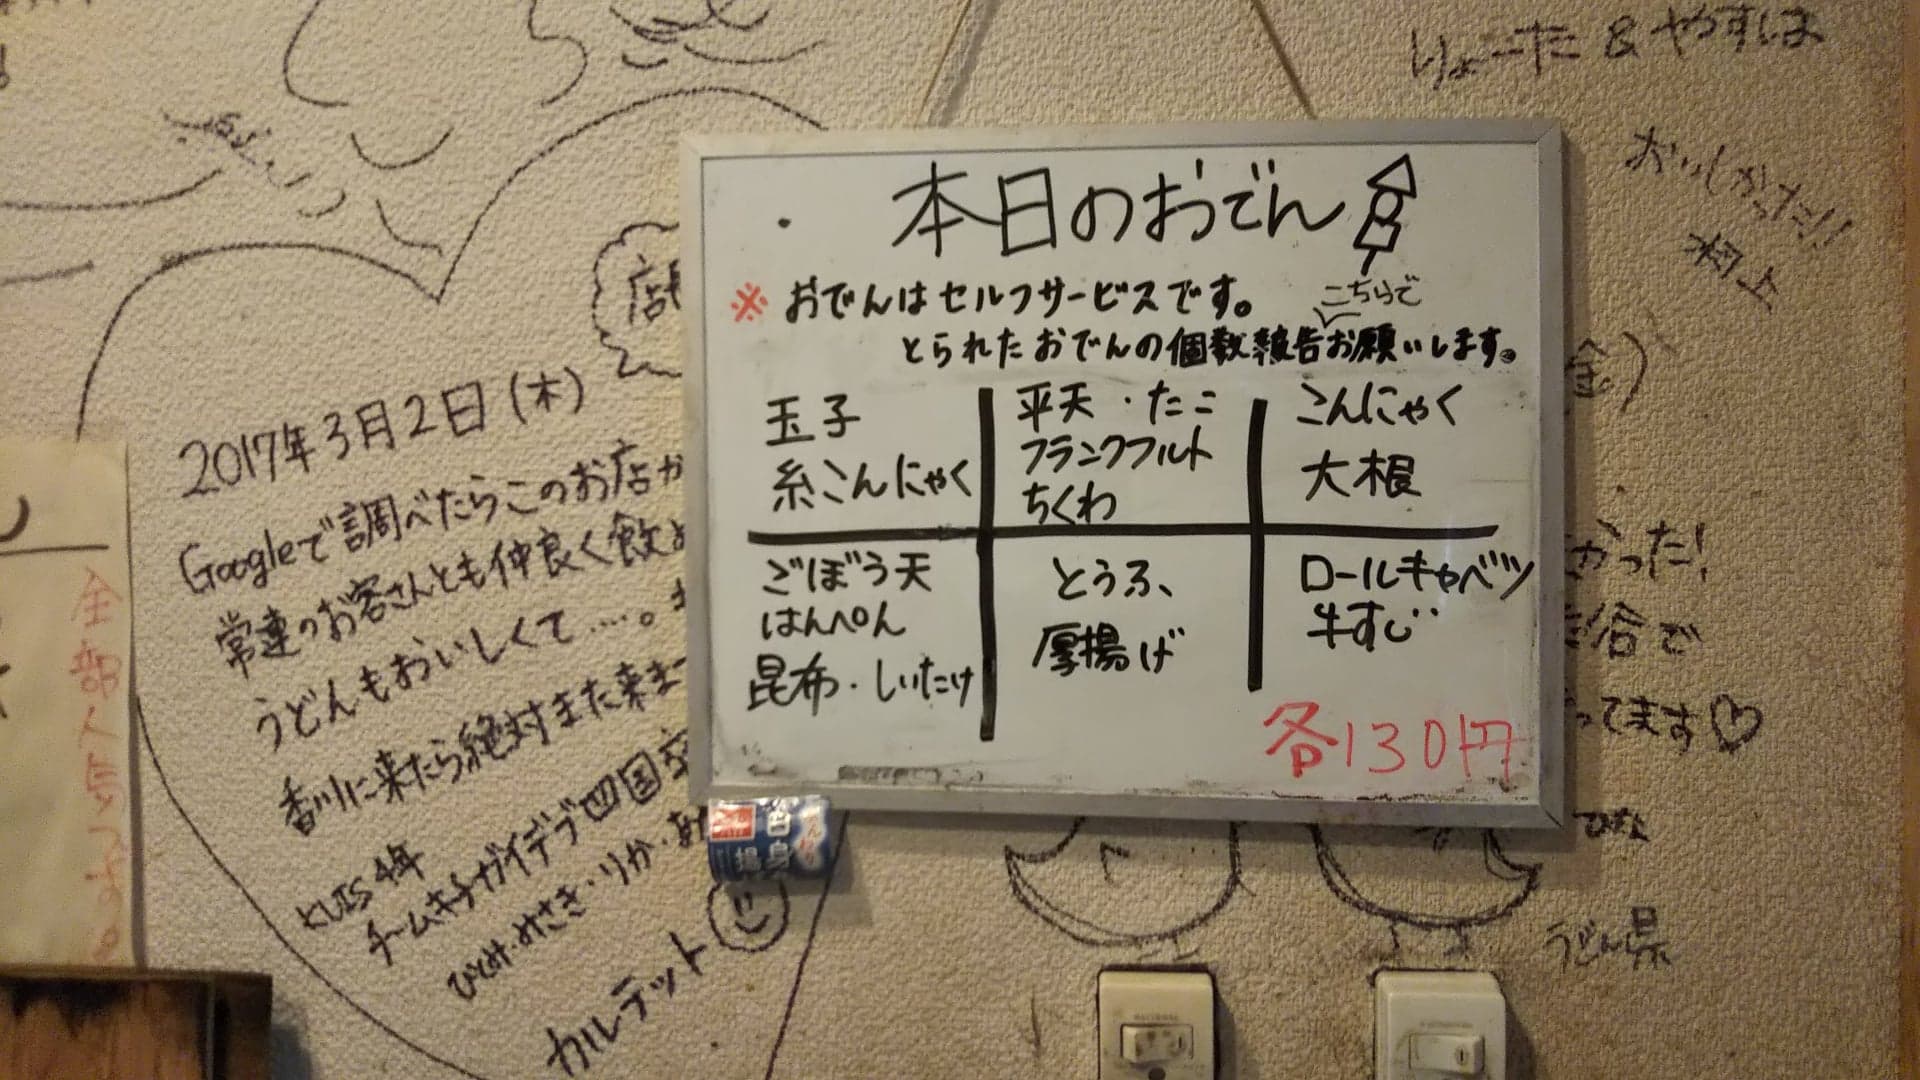 りょーた & やすしま
おいしかった!!
村上
本日のおでん
※ おでんはセルフサービスです。
こちらで
とられたおでんの個数報告お願いします。
玉子
糸こんにゃく
平天・たこ
フランクフルト
ちくわ
こんにゃく
大根
ごぼう天
はんぺん
昆布・しいたけ
とうふ、
厚揚げ
ロールキャベツ
牛すじ
各130円
店
2017年3月2日(木)
Googleで調べたらこのお店か
常連のお客さんとも仲良く飲め
うどんもおいしくて……。
香川に来たら絶対また来ま
KUIS 4年
チームキチガイデブ四国卒
ひとみ・みさき・りか・
カルテット
金)
かった!
で
ってます♡
うどん県
全部人気